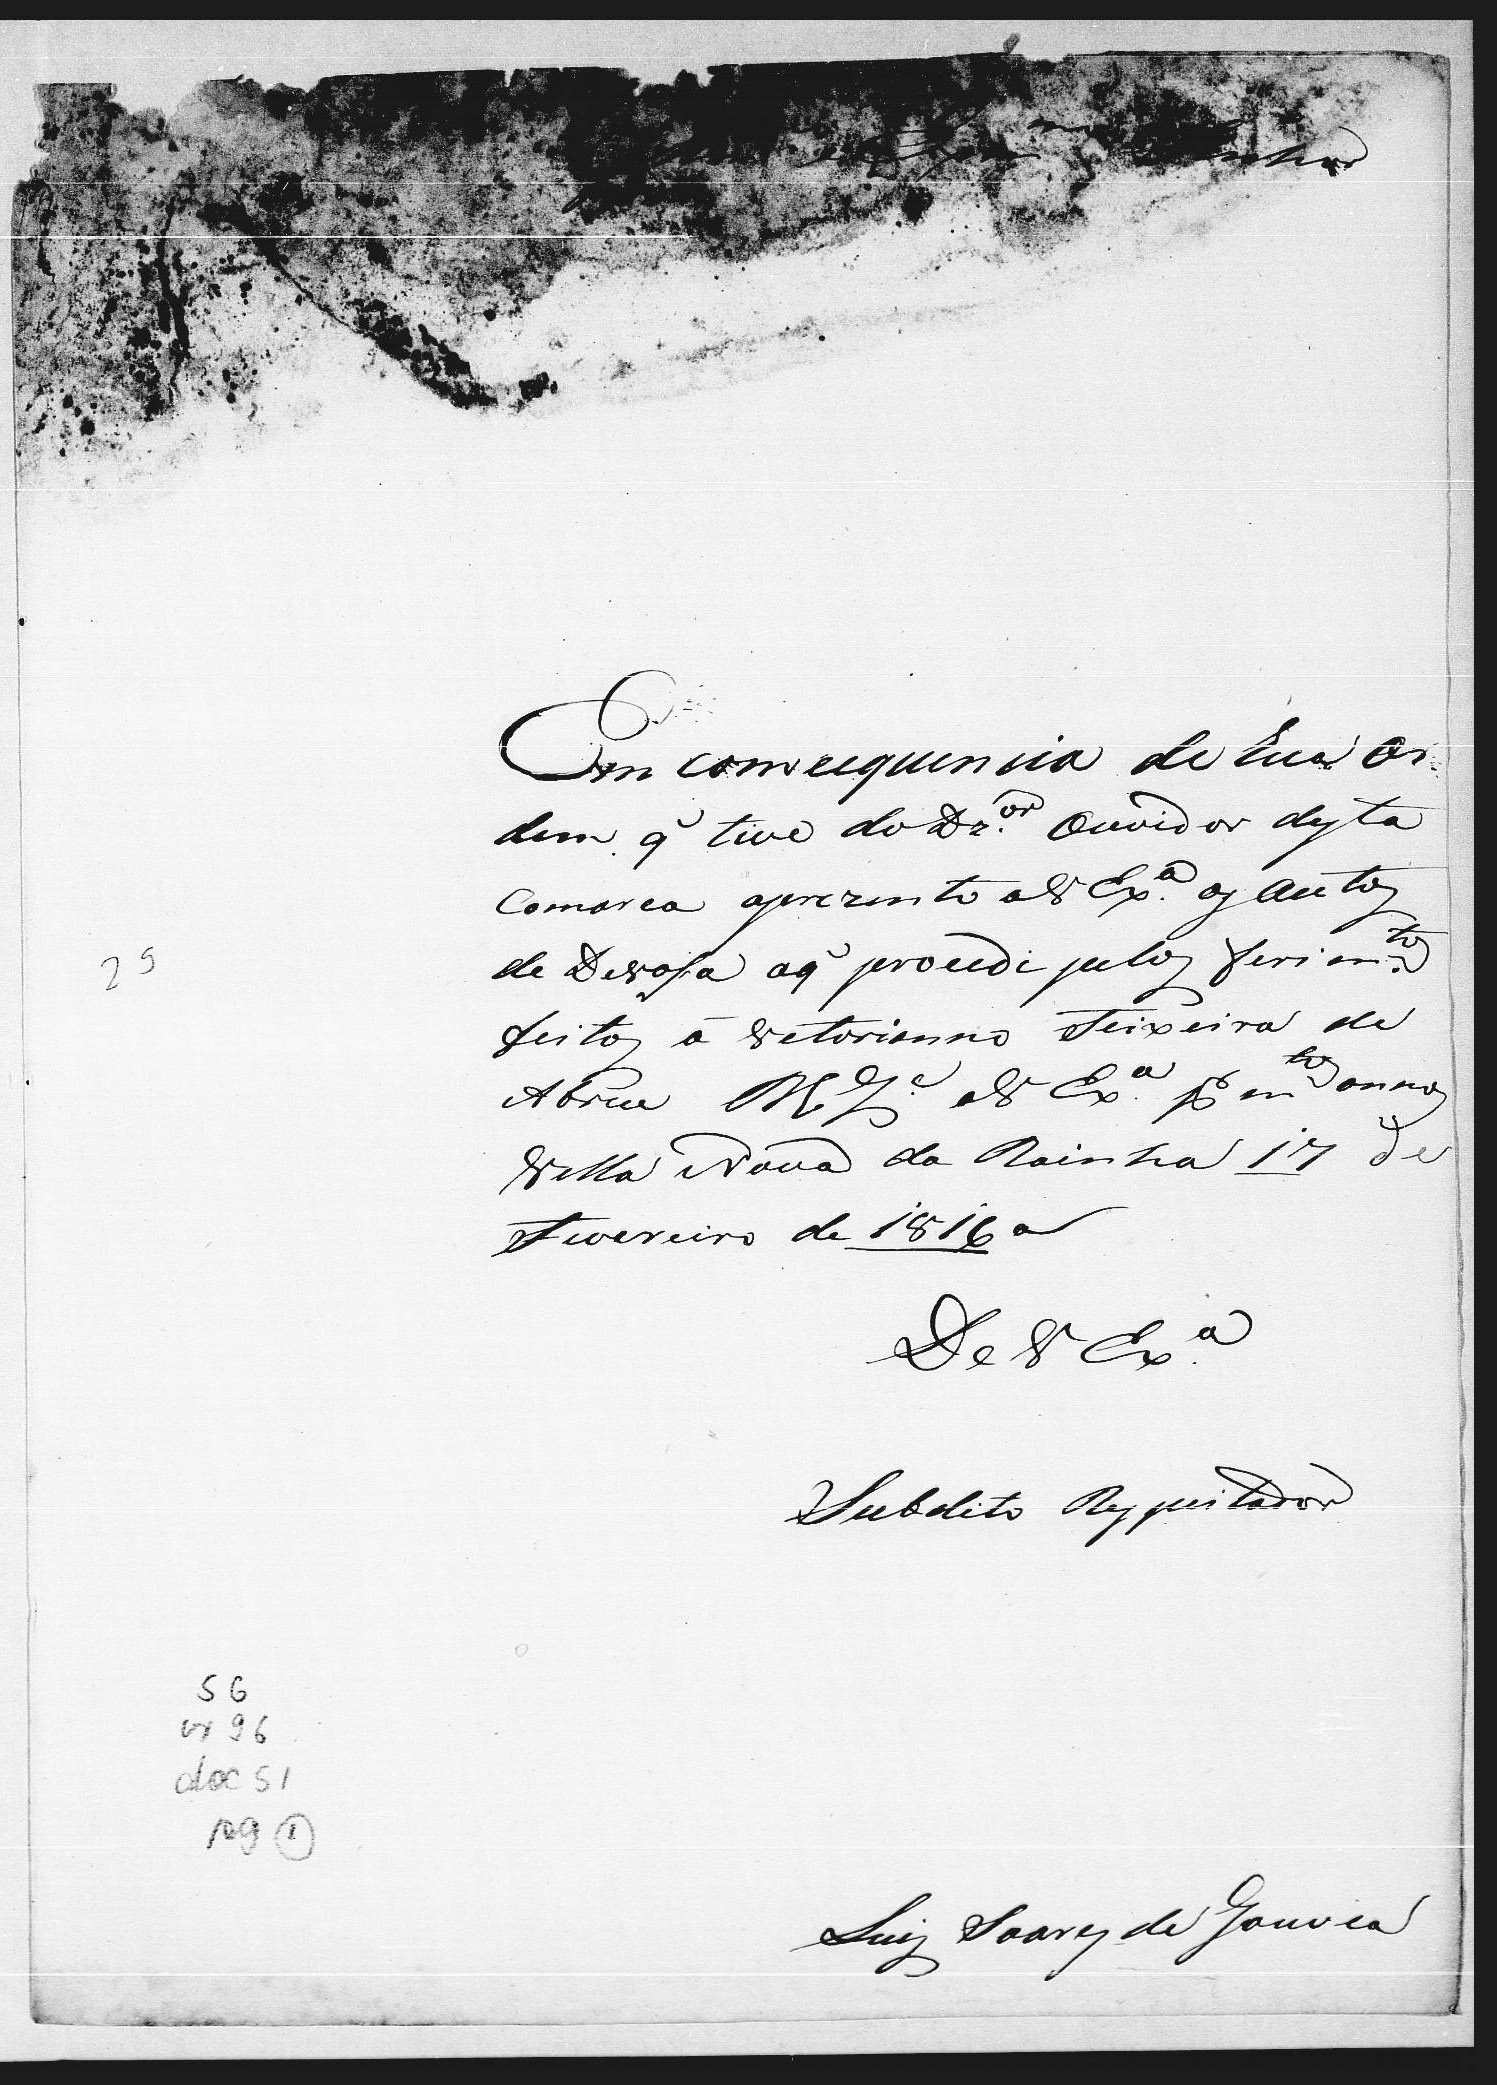 Ex.mo Senhor
Em consequencia de Sua Or-
dem q' tive do Dz.or Ouvidor desta
Comarca aprezento a V Ex.a os autos
de Devasa a q' procedi pelos ferim.tos
feitos á Vetorianno Teixeira de
Abreu D.s G.e a V Ex.a p m.tos annos
Villa Nova da Rainha 17 de
Fevereiro de 1816 a
De V Ex.a
Subdito Respeitador
Luis Soares de Gouvea
29
56
cx 96
doc 51
pg 1